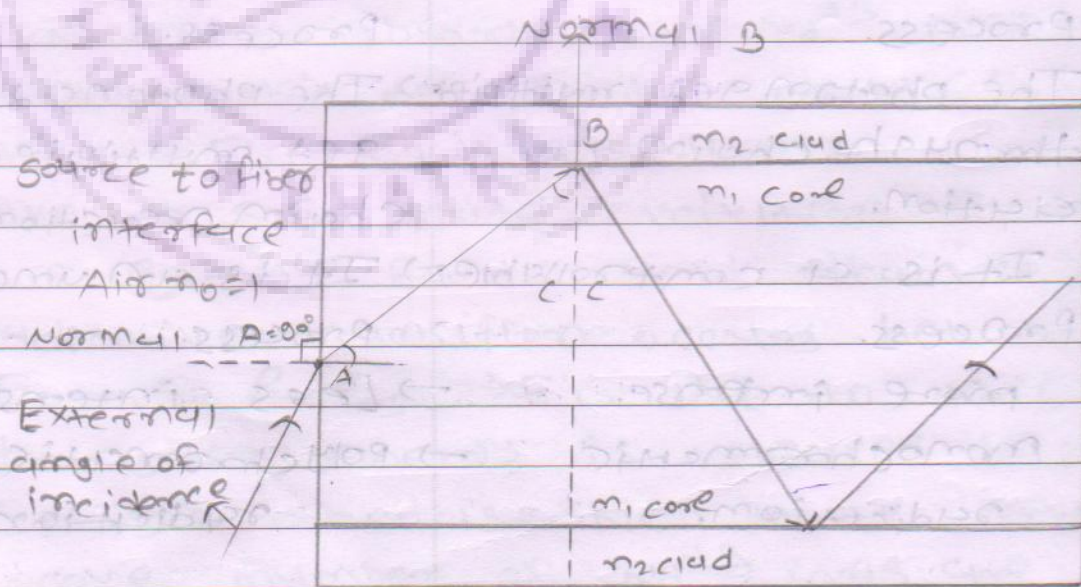 Normal B
B
n2 clad
n1 core
Source to fiber
interface
Air n0=1
C C
Normal A=90°
A
External
angle of
incidence
n1 core
n2 clad